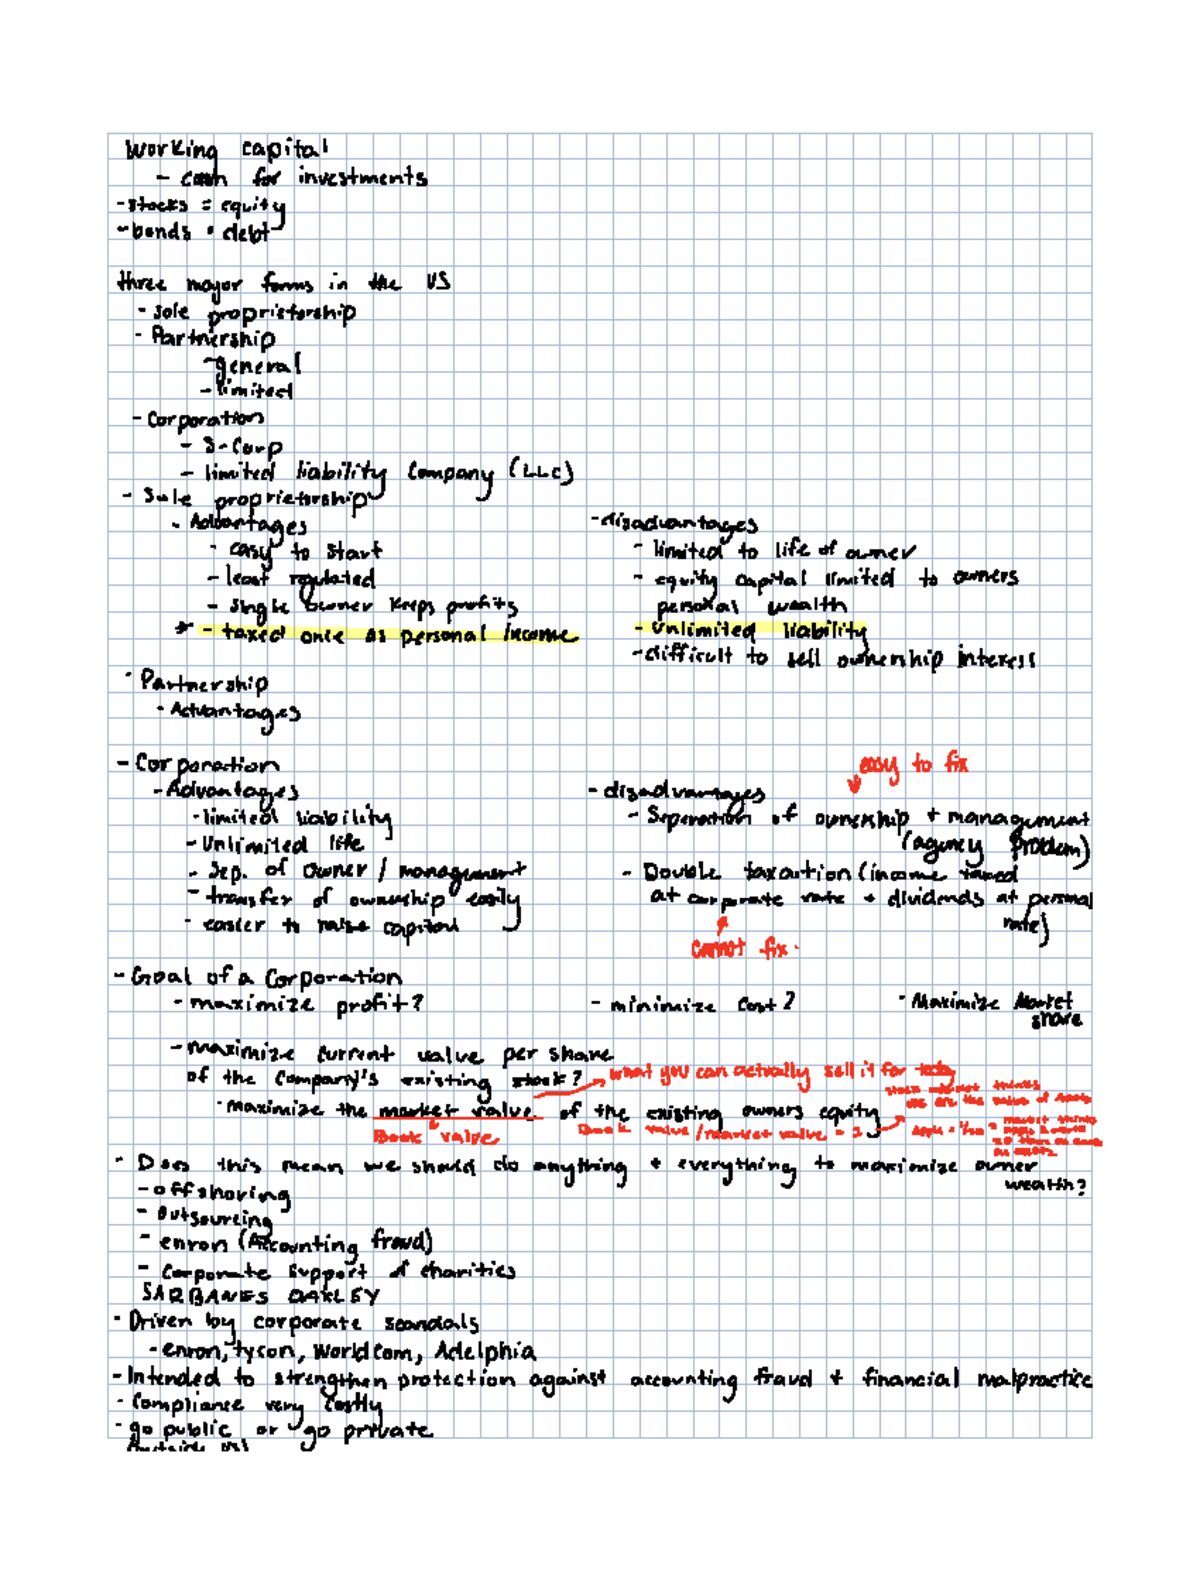 Working capital
- cash for investments
- stocks = equity
- bonds = debt
three major forms in the US
- sole proprietorship
- Partnership
- general
- limited
- Corporation
- S-Corp
- limited liability Company (LLC)
- Sole proprietorship
- Advantages
- easy to start
- least regulated
- single owner keeps profits
* - taxed once as personal income
- disadvantages
- limited to life of owner
- equity capital limited to owners
personal wealth
- Unlimited liability
- difficult to sell ownership interest
- Partnership
- Advantages
- Corporation
- Advantages
- limited liability
- Unlimited life
- Sep. of owner / management
- transfer of ownership easily
- easier to raise capital
easy to fix
- disadvantages
- Seperation of ownership + management
(agency problem)
- Double taxation (income taxed
at corporate rate + dividends at personal
rate)
cannot fix
- Goal of a Corporation
- maximize profit?
- minimize cost?
- Maximize Market
share
- maximize current value per share
of the Company's existing stock?
what you can actually sell it for today
- maximize the market value of the existing owners equity
Book value
Book value / market value = 1
- Does this mean we should do anything + everything to maximize owner
wealth?
- offshoring
- outsourcing
- enron (Accounting fraud)
- corporate support of charities
SARBANES OAKLEY
- Driven by corporate scandals
- enron, tycon, WorldCom, Adelphia
- Intended to strengthen protection against accounting fraud + financial malpractice
- Compliance very costly
- go public or go private